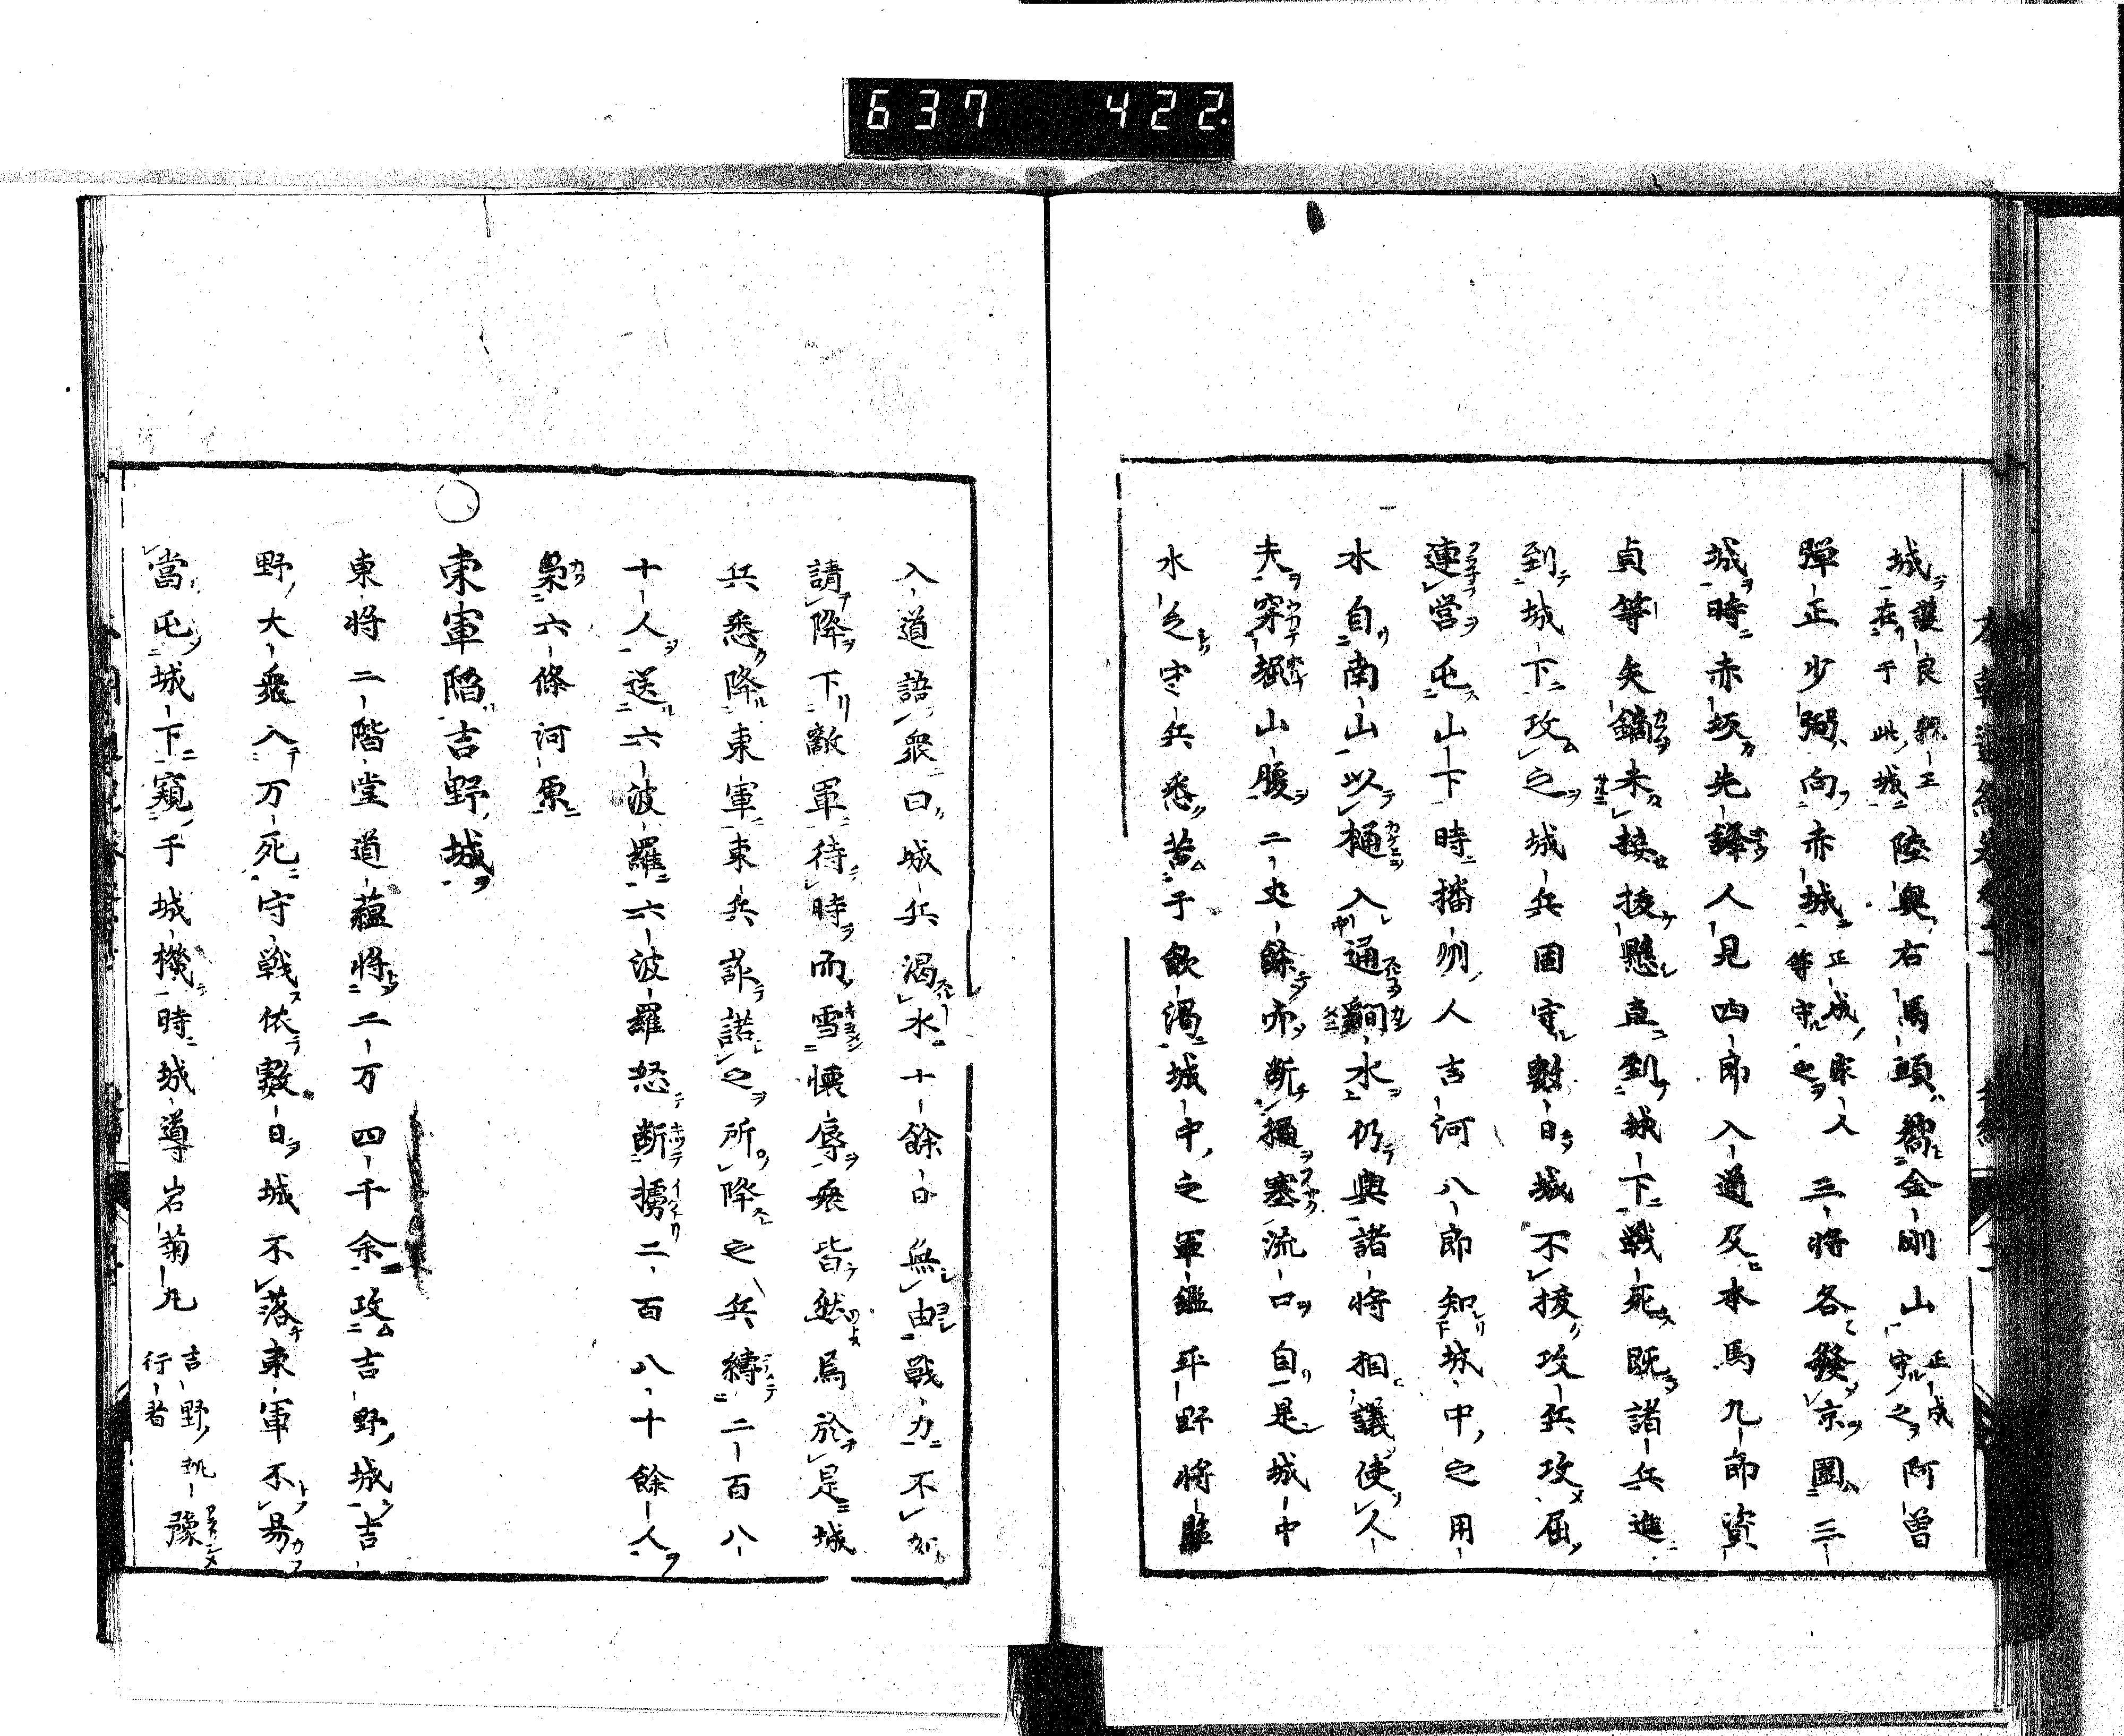 637 422
城護良親王在于此城陸奥右馬頭嚮金剛山正成守之阿曽
弾正少弼向赤城正成家人等守之三將各發京圍三
城時赤坂先鋒人見四郎入道及本馬九郎資
貞等矢鏑未接挍懸直到城下戰死既諸兵進
到城下攻之城兵固守數日城不挍攻兵攻屈
連營屯山下時播州人吉河八郎知城中之用
水自南山以樋入通澗水仍與諸將相議使人
夫穿堀山腹二丈餘而断塞流口自是城中
水乏守兵悉苦于飲渇城中之軍鑑平野將監
入道語衆曰城兵渇水十餘日無由戰力不如
請降下敵軍待時而雪懐辱衆皆然焉於是城
兵悉降東軍東兵許諾之所降之兵縛二百八
十人送六波羅六波羅怒断擄二百八十餘人
梟六條河原
○東軍陥吉野城
東將二階堂道蘊將二万四千余攻吉野城吉
野大衆入万死守戰依數日城不落東軍不易
當屯城下窺于城機時城導岩菊丸吉野執行者豫